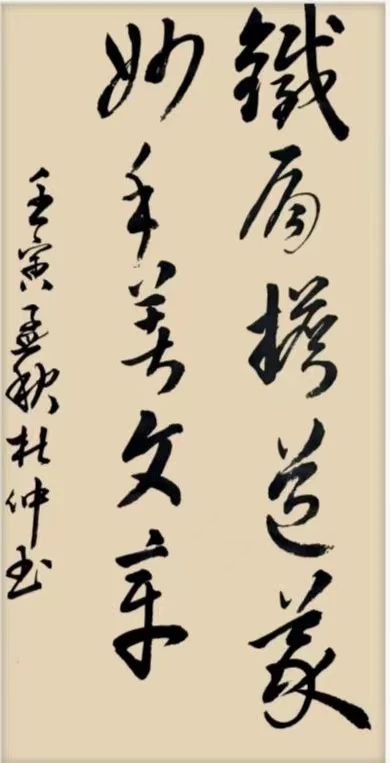 鐵肩擔道義
妙手著文章
壬寅孟秋杜仲玉